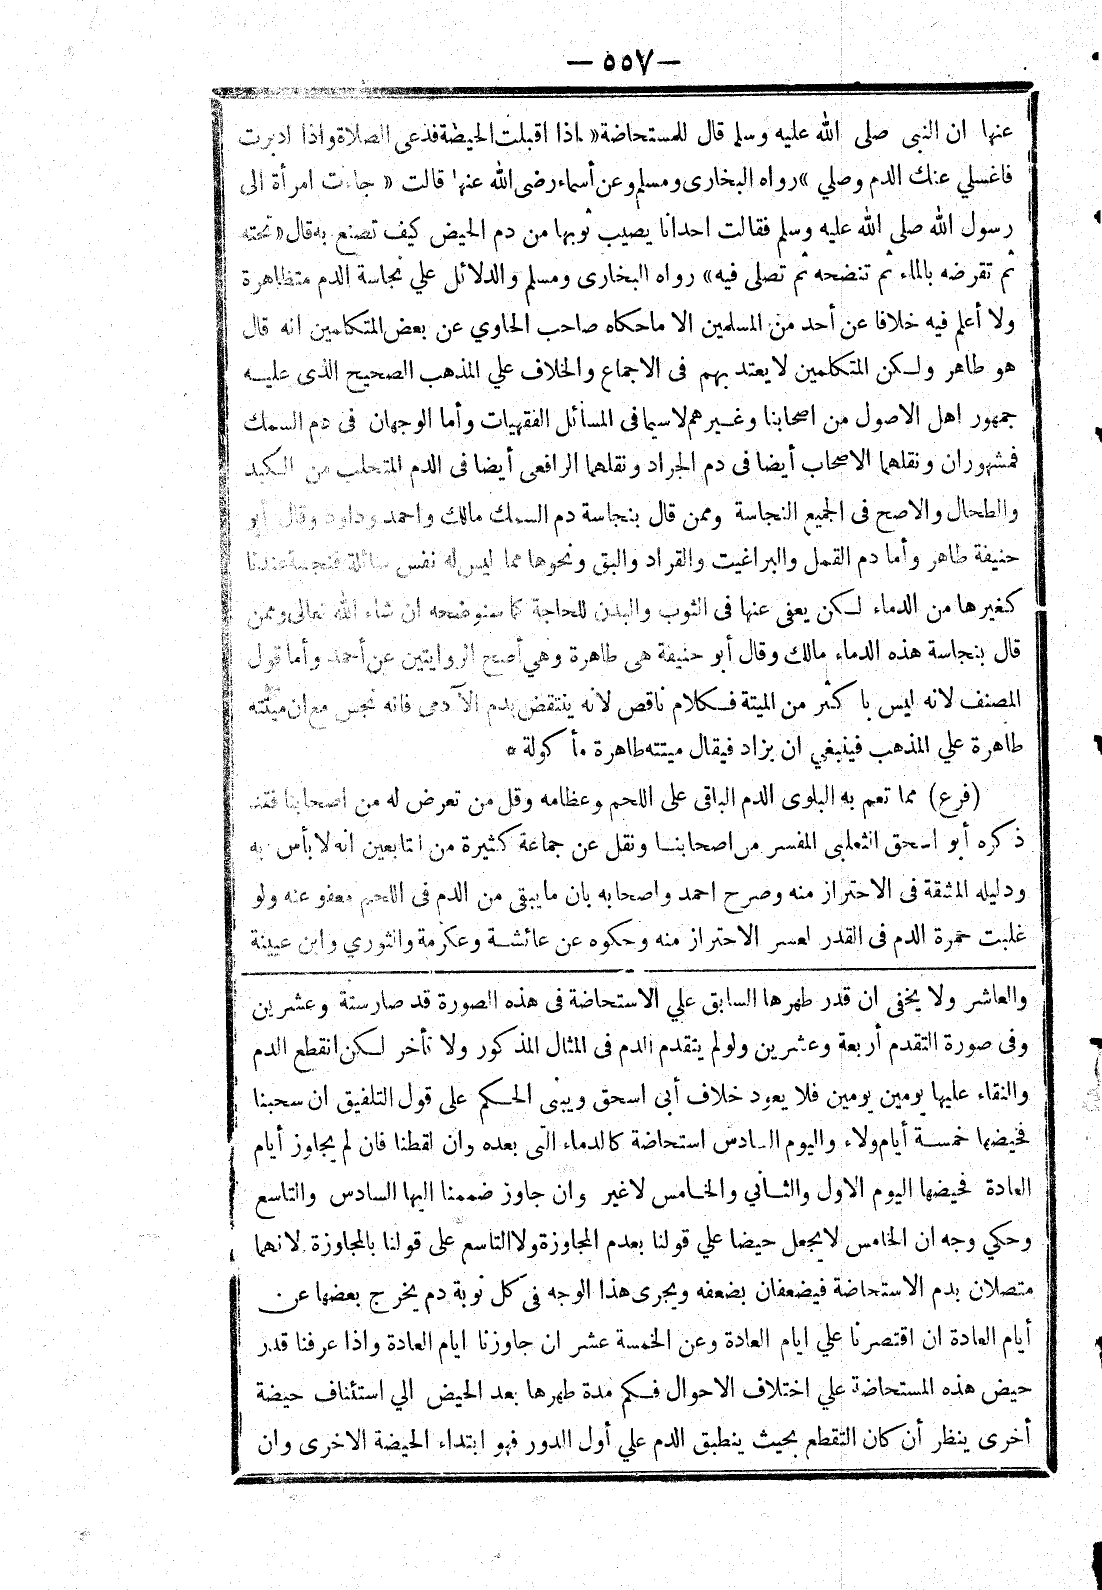 — ٥٥٧ —
عنها ان النبى صلى الله عليه وسلم قال للمستحاضة « اذا اقبلت الحيضة فدعى الصلاة واذا ادبرت
فاغسلي عنك الدم وصلي » رواه البخارى ومسلم وعن أسماء رضى الله عنها قالت « جاءت امرأة الى
رسول الله صلى الله عليه وسلم فقالت احدانا يصيب ثوبها من دم الحيض كيف تصنع به قال « تحته
ثم تقرضه بالماء ثم تنضحه ثم تصلى فيه » رواه البخارى ومسلم والدلائل علي نجاسة الدم متظاهرة
ولا أعلم فيه خلافا عن أحد من المسلمين الا ماحكاه صاحب الحاوي عن بعض المتكلمين انه قال
هو طاهر ولكن المتكلمين لا يعتد بهم فى الاجماع والخلاف علي المذهب الصحيح الذى عليه
جمهور اهل الاصول من اصحابنا وغيرهم لاسيما فى المسائل الفقهيات وأما الوجهان فى دم السمك
فمشهوران ونقلهما الاصحاب أيضا فى دم الجراد ونقلهما الرافعى أيضا فى الدم المتحلب من الكبد
والطحال والاصح فى الجميع النجاسة وممن قال بنجاسة دم السمك مالك واحمد وداود وقال أبو
حنيفة طاهر وأما دم القمل والبراغيت والقراد والبق ونحوها مما ليس له نفس سائلة فنجسة عندنا
كغيرها من الدماء لكن يعفى عنها فى الثوب والبدن للحاجة كما سنوضحه ان شاء الله تعالى وممن
قال بنجاسة هذه الدماء مالك وقال أبو حنيفة هى طاهرة وهي أصح الروايتين عن أحمد وأما قول
المصنف لانه ليس باكثر من الميتة فكلام ناقص لانه ينتقض بدم الآدمى فانه نجس مع ان ميتته
طاهرة علي المذهب فينبغي ان يزاد فيقال ميتته طاهرة مأكولة *
(فرع) مما تعم به البلوى الدم الباقى على اللحم وعظامه وقل من تعرض له من اصحابنا فقد
ذكره أبو اسحق الثعلبى المفسر من اصحابنا ونقل عن جماعة كثيرة من التابعين انه لا بأس به
ودليله المشقة فى الاحتراز منه وصرح احمد واصحابه بان مايبقى من الدم فى اللحم معفو عنه ولو
غلبت حمرة الدم فى القدر لعسر الاحتراز منه وحكوه عن عائشة وعكرمة والثوري وابن عيينة
والعاشر ولا يخفى ان قدر طهرها السابق علي الاستحاضة فى هذه الصورة قد صار ستة وعشرين
وفى صورة التقدم أربعة وعشرين ولو لم يتقدم الدم فى المثال المذكور ولا تأخر لكن انقطع الدم
والنقاء عليها يومين يومين فلا يعود خلاف أبى اسحق ويبنى الحكم على قول التلفيق ان سحبنا
فحيضها خمسة أيام ولاء واليوم السادس استحاضة كالدماء التى بعده وان لقطنا فان لم يجاوز أيام
العادة فحيضها اليوم الاول والثاني والخامس لاغير وان جاوز ضممنا اليها السادس والتاسع
وحكي وجه ان الخامس لايجعل حيضا علي قولنا بعدم المجاوزة ولا التاسع على قولنا بالمجاوزة لانهما
متصلان بدم الاستحاضة فيضعفان بضعفه ويجرى هذا الوجه فى كل نوبة دم يخرج بعضها عن
أيام العادة ان اقتصرنا علي ايام العادة وعن الخمسة عشر ان جاوزنا ايام العادة واذا عرفنا قدر
حيض هذه المستحاضة علي اختلاف الاحوال فكم مدة طهرها بعد الحيض الي استئناف حيضة
أخرى ينظر أن كان التقطع بحيث ينطبق الدم علي أول الدور فهو ابتداء الحيضة الاخرى وان